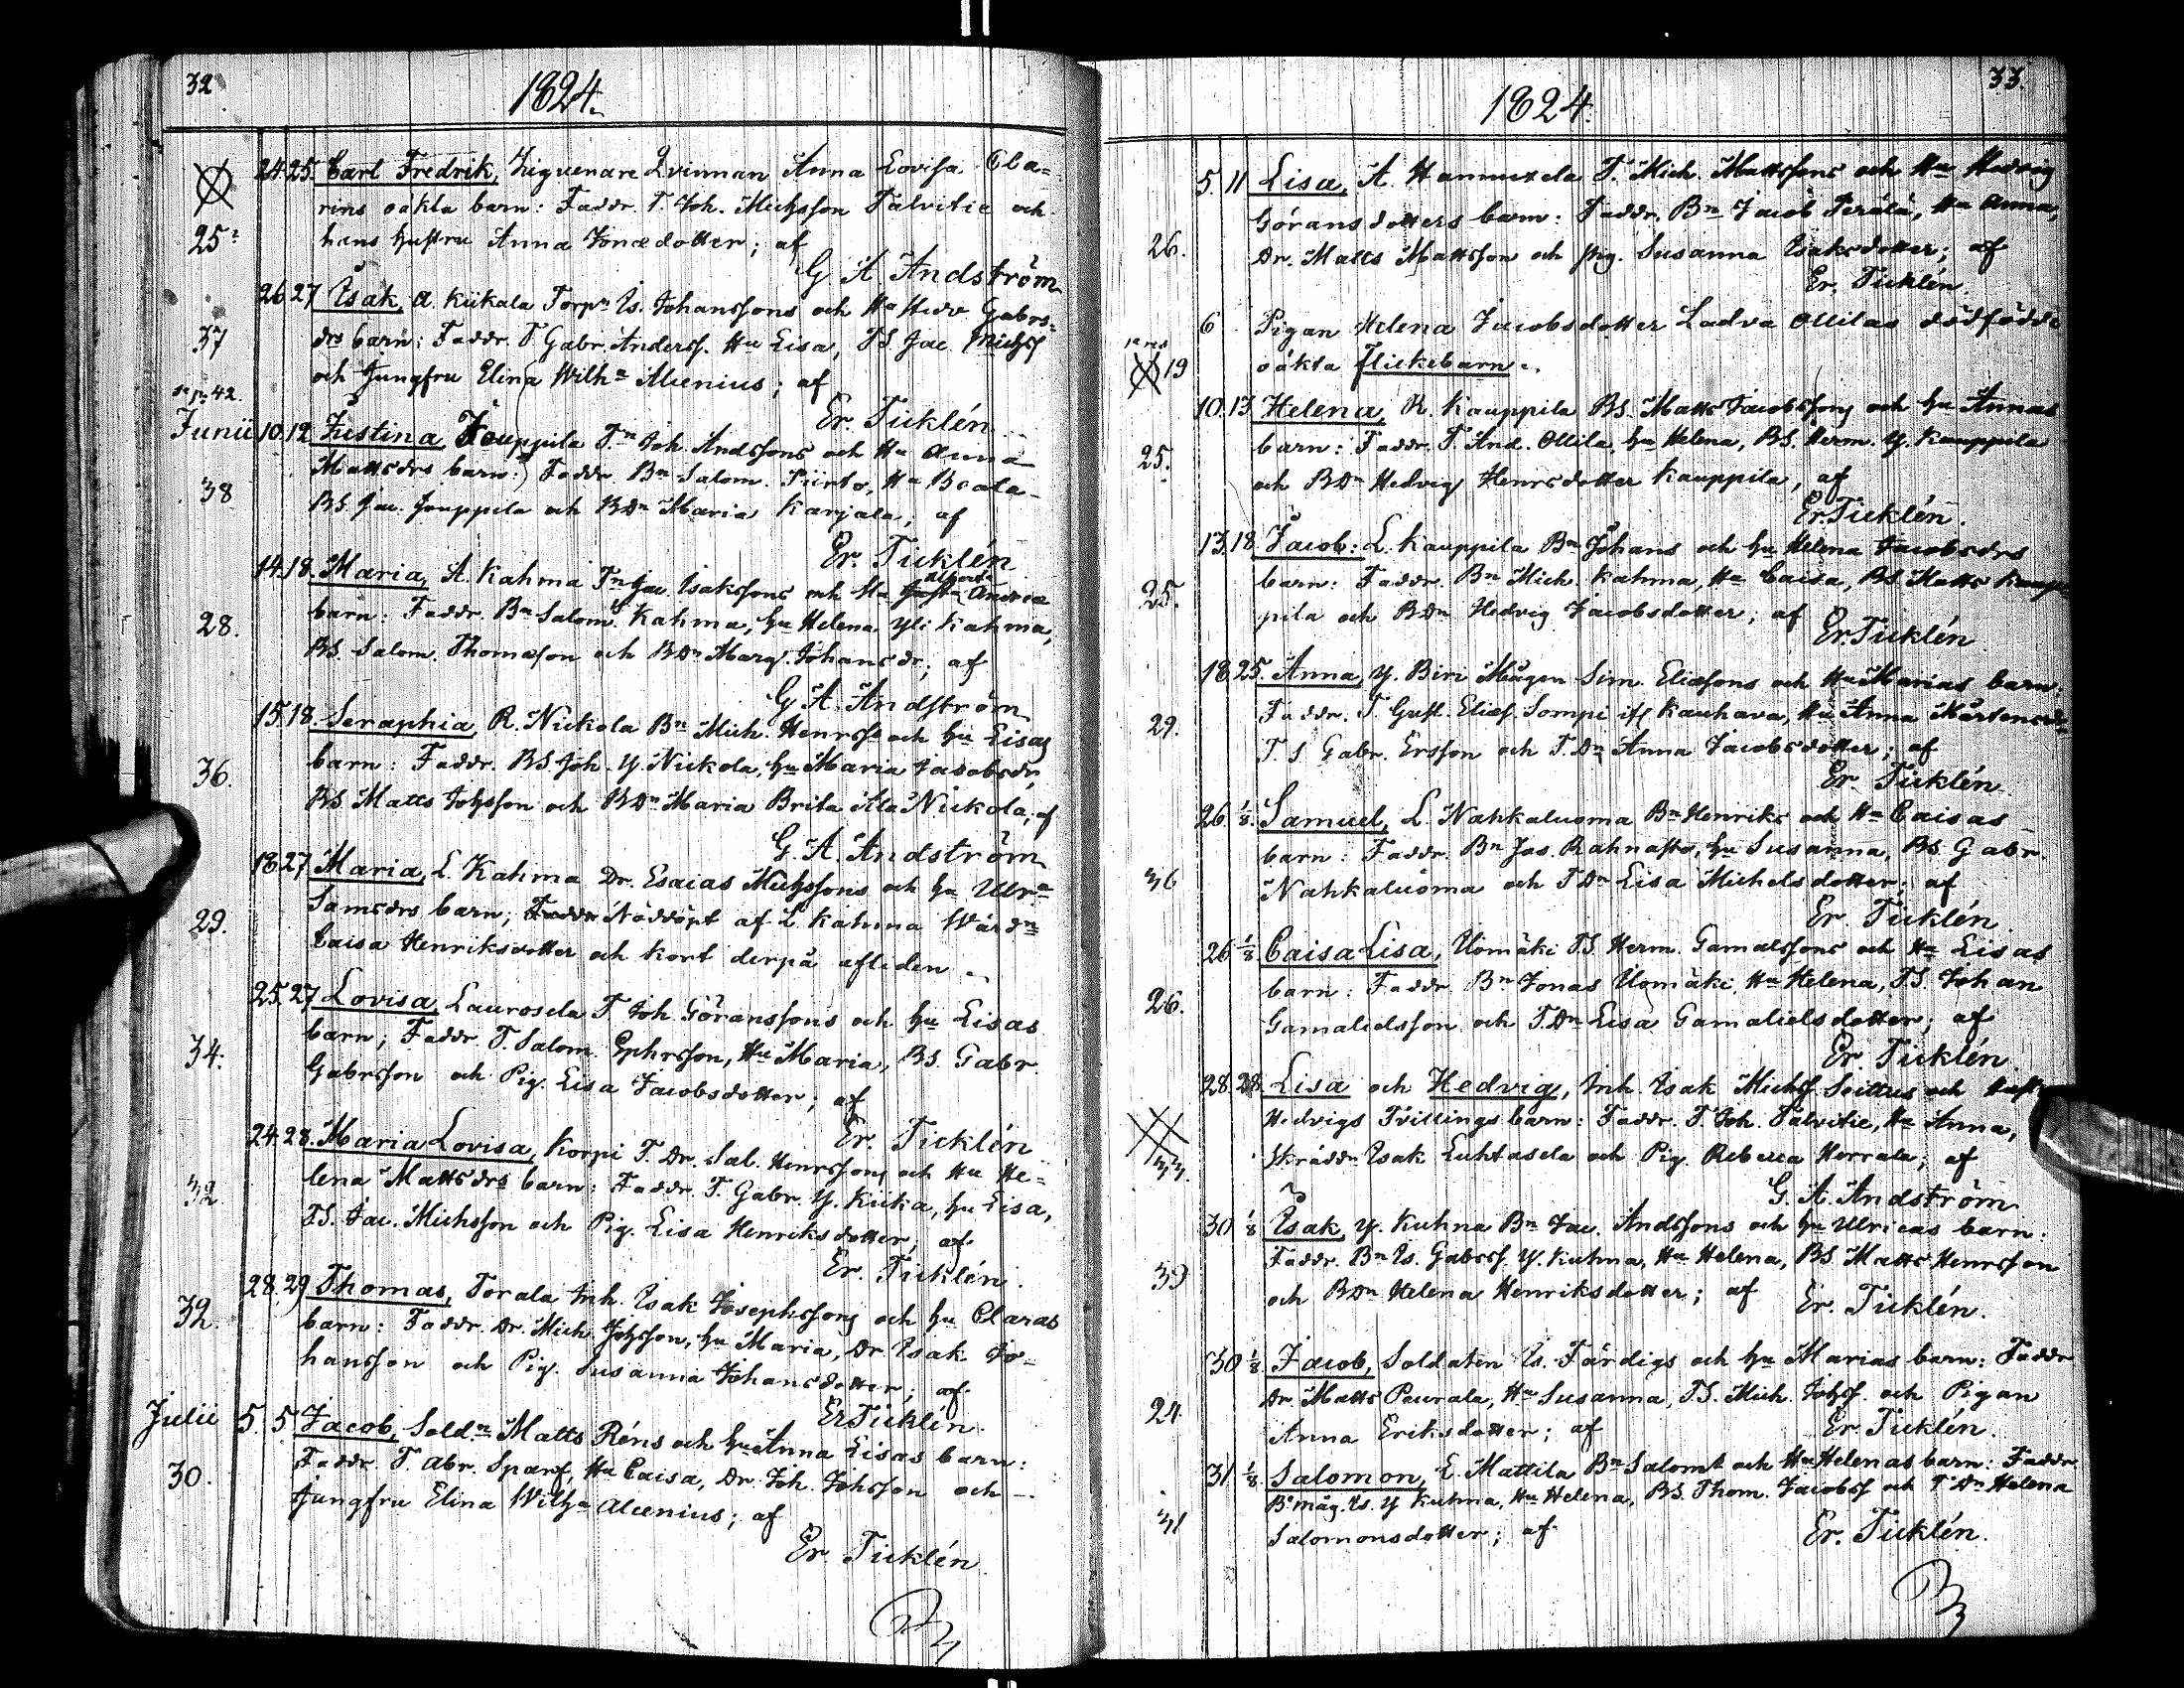 32
1824.
24.25. Carl Fredrik, Ziguenare Qvinnan Anna Lovisa Cla=
rins oäkta barn: Faddr. T. Joh. Michsson Talvitie och
25. hans hustru Anna Jonædotter; af
G A Andström
26.27 Isak, A. Kiikala Torpr Is. Johanssons och Hu Hedv. Gabrs=
37 drs barn: Faddr. T. Gabr. Anderss. Hu Lisa, TS. Jac. Michss
och Jungfru Elina Wilhna Alcenius; af
Er. Ticklén
Junii 10.12. Justina Jouppila Tn Joh. Andssons och Hu Anna
Mattsdrs barn: Faddr Bn Salom. Piirto, Hu Beata
38 BS. Jac. Jouppila och BDr Maria Karjala; af
Er. Ticklén
14.18. Maria, A. Kahma Tn Jac. Isakssons och Hu Andrie
28. barn: Faddr. Bn Salom. Kahma, hu Helena Yli Kahma,
BS. Salom. Thomæson och BDr Marg. Johansdr; af
G. A. Andström
15.18. Seraphia, R. Nickola Bn Mich. Henrss och hu Lisas
36. barn: Faddr. BS Joh. Y. Nickola, hu Maria Jacobsdr
BS. Matts Johsson och BDr Maria Brita Ala Nickola; af
G. A. Andström
18.27 Maria, L. Kahma Dr. Esaias Michssons och hu Ulra
Samsdrs barn; Nöddöpt af L Kahma Wärdn
29. Caisa Henriksdotter och kort derpå afliden.
25.27 Lovisa, Laurosela T. Joh. Göranssons och hu Lisas
34. barn; Faddr. T. Salom. Ephrsson, Hu Maria, BS. Gabr.
Gabrsson och Pig. Lisa Jacobsdotter; af
Er. Ticklén
24.28. Maria Lovisa, Korpi T. Dr. Sal. Henrssons och Hu He=
32. lena Mattsdrs barn: Faddr. T. Gabr. Y. Kiika, hu Lisa,
TS. Jac. Michsson och Pig. Lisa Henriksdotter; af
Er. Ticklén.
28.29 Thomas, Torala Inh. Isak Josephssons och hu Claras
32. barn: Faddr. Dr. Mich. Johsson, hu Maria, Dr. Isak Jo=
hansson och Pig. Susanna Johansdotter; af
Er Ticklén.
Julii 5. 5 Jacob, Soldn Matts Réns och hu Anna Lisas barn:
30. Faddr. T. Abr. Sparf, Hu Caisa, Dr. Joh. Johsson och
Jungfru Elina Wilha Alcenius; af
Er. Ticklén
33.
1824.
5. 11 Lisa, A. Hannuxela T. Mich. Mattssons och Hu Hedvig
Göransdotters barn: Faddr. Bn Jacob Perälä, Hu Anna,
26. Dr. Matts Mattsson och pig. Susanna Isaksdotter; af
Er. Ticklén
6 Pigan Helena Jacobsdotter Ladva Ollilas dödfödde
19 oäkta flickebarn.
10.13 Helena, R. Kauppila BS. Matts Jacobssons och hu Annas
25. barn: Faddr. T. And. Ollila, hu Helena, BS. Herm. Y. Kauppila
och BDr Hedvig Henrsdotter Kauppila, af
Er. Ticklén.
13.18. Jacob: L. Kauppila Bn Johans och hu Helena Jacobsdrs
25. barn: Faddr. Bn Mich. Kahma, Hu Caisa, BS. Matts Kaup
pila och BDr Hedvig Jacobsdotter; af
Er. Ticklén
18.25. Anna, Y. Biri Mågen Sim. Eliæsons och Hu Marias barn:
29. Faddr. T. Gust. Eliæs. Sompi ifr Kauhava, Hu Anna Mårtensdr
T. S. Gabr. Ersson och T. Dr Anna Jacobsdotter; af
Er. Ticklén
26. 1/8. Samuel, L. Nahkaluoma Bn Henriks och Hu Caisas
barn: Faddr. Bn Jos. Rahnasto, hu Susanna, BS. Gabr.
36 Nahkaluoma och TDr Lisa Michelsdotter; af
Er. Ticklén
26 1/8 Caisa Lisa, Uomäki TS. Herm. Gamalssons och Hu Lisas
26. barn: Faddr. Bn Jonas Uomäki, Hu Helena, TS. Johan
Gamalielsson och T. Dr Lisa Gamalielsdotter; af
Er. Ticklén
28.28. Lisa och Hedvig, Inh. Isak Michss Soittus och Hust
Hedvigs Tvillingsbarn: Faddr. T. Joh. Talvitie, Hu Anna,
33. Skräddr Isak Luhtasela och Pig. Rebecca Herrala; af
G. A. Andström
30 1/8 Isak, Y. Kuhna Bn Jac. Andssons och hu Ulricas barn:
39 Faddr. Bn Is. Gabrss. Y. Kuhna, Hu Helena, BS. Matts Henrsson
och BDr Helena Henriksdotter; af
Er. Ticklén.
30 1/8. Jacob, Soldaten Is. Färdigs och hu Marias barn: Faddr
24. Dr Matts Paurala, Hu Susanna, TS. Mich. Johss. och Pigan
Anna Eriksdotter; af
Er. Ticklén.
31. 1/8. Salomon, L. Mattila Bn Salom. och Hu Helenas barn: Faddr.
Bmåg. Is. Y Kuhna, Hu Helena, BS. Thom. Jacobss och T Dr Helena
31 Salomonsdotter; af
Er. Ticklén.